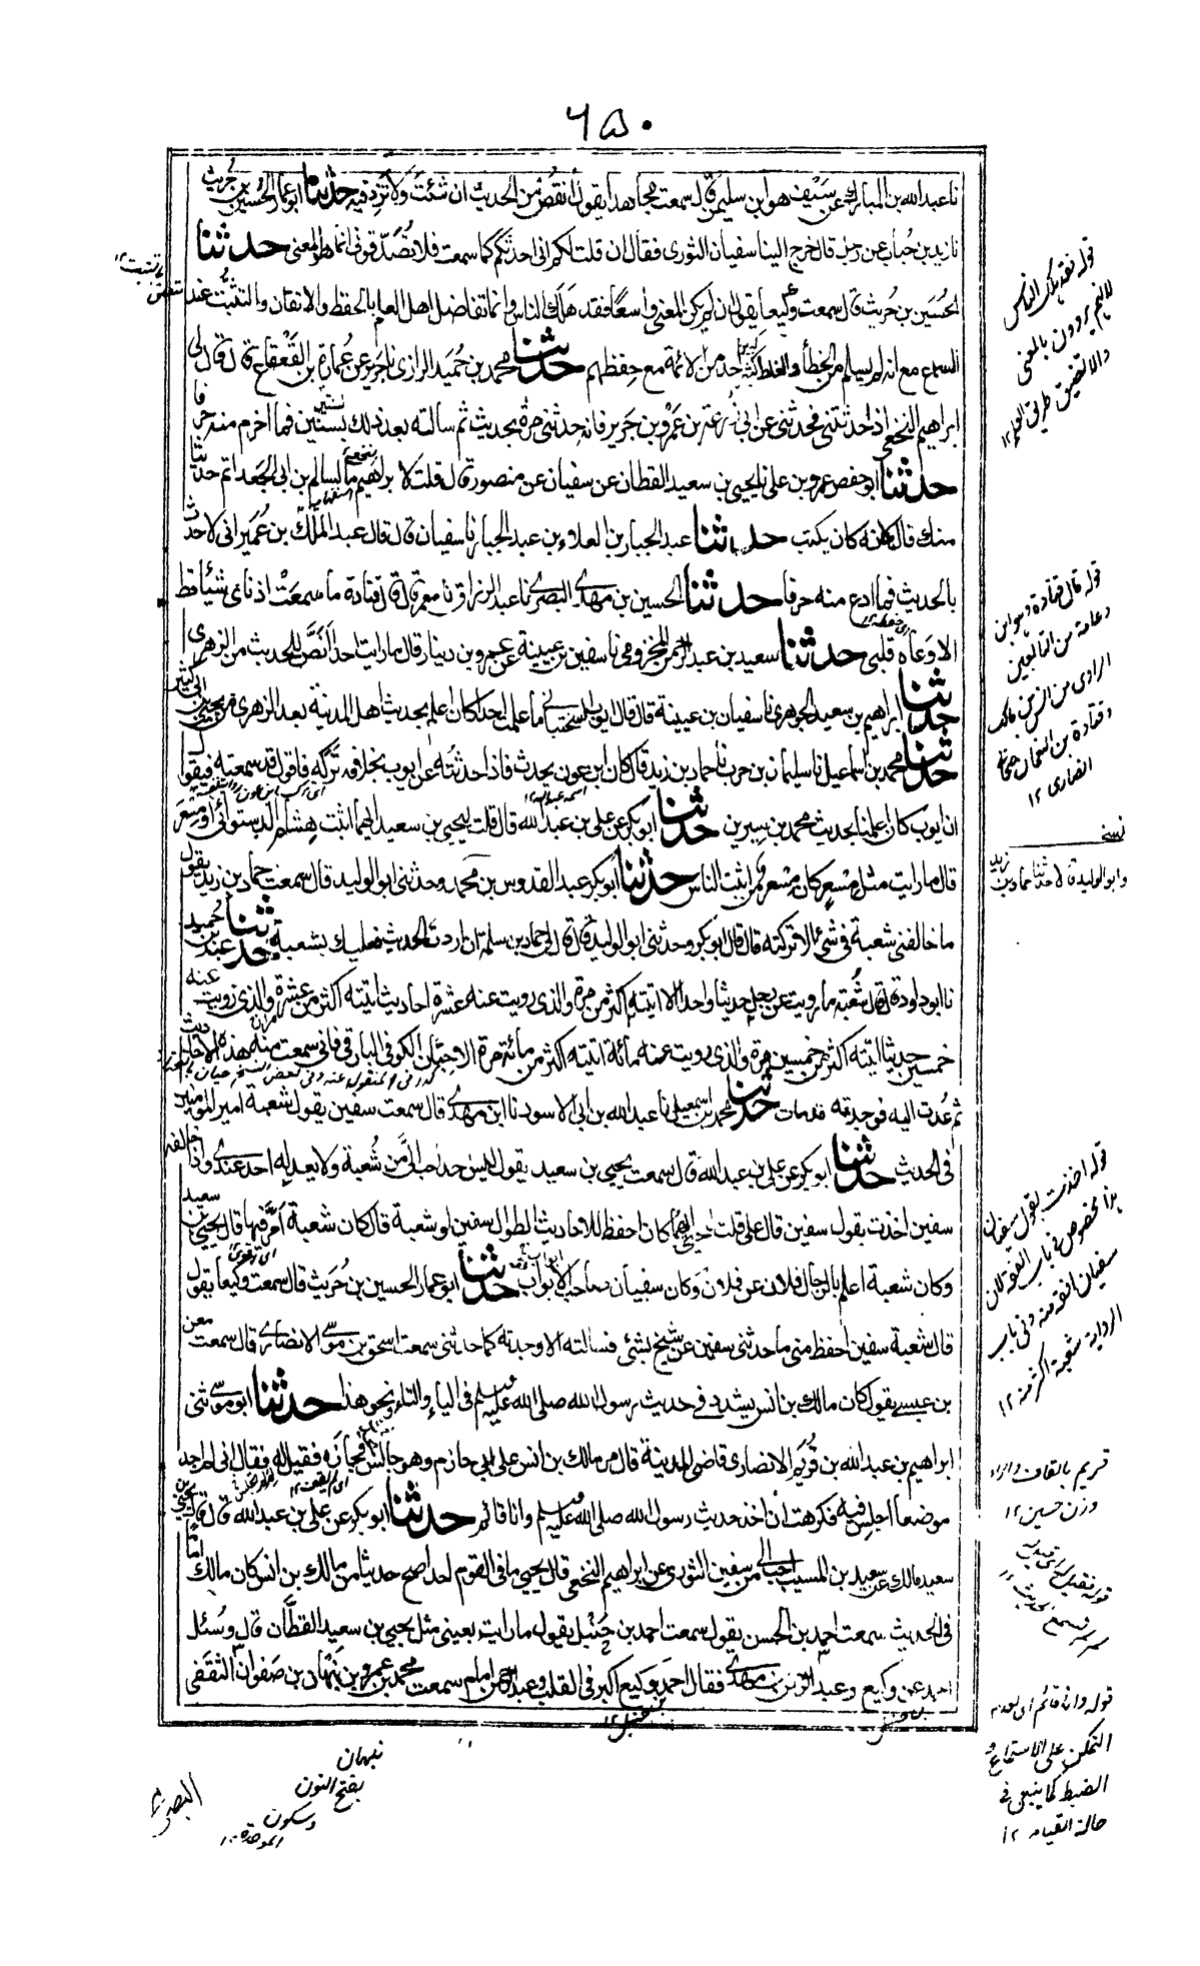 ٦٥٠
نا عبد الله بن المبارك عن سيف هو ابن سليمن قال سمعت مجاهدا يقول انقص من الحديث ان شئت ولا تزد فيه حدثنا ابو عمار الحسين بن حريث
نا زيد بن حباب عن رجل قال خرج الينا سفيان الثورى فقال ان قلت لكم انى احدثكم كما سمعت فلا تصدقونى انما هو المعنى حدثنا
الحسين بن حريث قال سمعت وكيعا يقول ان لم يكن المعنى واسعا فقد هلك الناس وانما تفاضل اهل العلم بالحفظ والاتقان والتثبت عند
السماع مع انه لم يسلم من الخطأ والغلط كثير احد من الائمة مع حفظهم حدثنا محمد بن حميد الرازى نا جرير عن عمارة بن القعقاع قال قال لى
ابراهيم النخعى اذا حدثتنى فحدثنى عن ابى زرعة بن عمرو بن جرير فانه حدثنى مرة بحديث ثم سالته بعد ذلك بسنتين فما اخرم منه حرفا
حدثنا ابو حفص عمرو بن على نا يحيى بن سعيد القطان عن سفيان عن منصور قال قلت لابراهيم ما لسالم بن ابى الجعد اتم حديثا
منك قال لانه كان يكتب حدثنا عبد الجبار بن العلاء بن عبد الجبار نا سفيان قال قال عبد الملك بن عمير انى لاحدث
بالحديث فما ادع منه حرفا حدثنا الحسين بن مهدى البصرى نا عبد الرزاق نا معمر قال قال قتادة ما سمعت اذناى شيئا قط
الا وعاه قلبى حدثنا سعيد بن عبد الرحمن المخزومى نا سفين بن عيينة عن عمرو بن دينار قال ما رايت احدا انص للحديث من الزهرى
حدثنا ابراهيم بن سعيد الجوهرى نا سفيان بن عيينة قال قال ايوب السختيانى ما علمت احدا كان اعلم بحديث اهل المدينة بعد الزهرى من يحيى بن ابى كثير
حدثنا محمد بن اسماعيل نا سليمان بن حرب نا حماد بن زيد قال كان ابن عون يحدث فاذا حدثته عن ايوب بخلافه تركه فاقول قد سمعته فيقول
ان ايوب كان اعلمنا بحديث محمد بن سيرين حدثنا ابو بكر عن على بن عبد الله قال قلت ليحيى بن سعيد ايهما اثبت هشام الدستوائى او مسعر
قال ما رايت مثل مسعر كان مسعر من اثبت الناس حدثنا ابو بكر عبد القدوس بن محمد وحدثنى ابو الوليد قال سمعت حماد بن زيد يقول
ما خالفنى شعبة فى شئ الا تركته قال قال ابو بكر وحدثنى ابو الوليد قال قال لى حماد بن سلمة ان اردت الحديث فعليك بشعبة حدثنا عبد بن حميد
نا ابو داود قال قال شعبة ما رويت عن رجل حديثا واحدا الا اتيته اكثر من مرة والذى رويت عنه عشرة احاديث اتيته اكثر من عشرة والذى رويت عنه
خمسين حديثا اتيته اكثر من خمسين مرة والذى رويت عنه مائة اتيته اكثر من مائة مرة الا حيان الكوفى البارقى فانى سمعت منه هذه الاحاديث
ثم عدت اليه فوجدته قد مات حدثنا محمد بن اسمعيل نا عبد الله بن ابى الاسود نا ابن مهدى قال سمعت سفين يقول شعبة امير المؤمنين
فى الحديث حدثنا ابو بكر عن على بن عبد الله قال سمعت يحيى بن سعيد يقول ليس احد احب الى من شعبة ولا يعدله احد عندى واذا خالفه
سفين اخذت بقول سفين قال على قلت ليحيى ايهما كان احفظ للاحاديث الطوال سفين او شعبة قال كان شعبة امر فيها قال يحيى بن سعيد
وكان شعبة اعلم بالرجال فلان عن فلان وكان سفيان صاحب الابواب حدثنا ابو عمار الحسين بن حريث قال سمعت وكيعا يقول
قال شعبة سفين احفظ منى ما حدثنى سفين عن شيخ بشئ فسالته الا وجدته كما حدثنى سمعت اسحق بن موسى الانصارى قال سمعت معن
بن عيسى يقول كان مالك بن انس يشدد فى حديث رسول الله صلى الله عليه وسلم فى الياء والتاء ونحو هذا حدثنا ابو موسى ثنى
ابراهيم بن عبد الله بن قريم الانصارى قاضى المدينة قال مر مالك بن انس على ابى حازم وهو جالس فجازه فقيل له فقال انى لم اجد
موضعا اجلس فيه فكرهت ان اخذ حديث رسول الله صلى الله عليه وسلم وانا قائم حدثنا ابو بكر عن على بن عبد الله قال قال يحيى بن
سعيد مالك عن سعيد بن المسيب احب الى من سفين الثورى عن ابراهيم النخعى قال يحيى ما فى القوم احد اصح حديثا من مالك بن انس كان مالك اماما
فى الحديث سمعت احمد بن الحسن يقول سمعت احمد بن حنبل يقول ما رايت بعينى مثل يحيى بن سعيد القطان قال وسئل
احمد عن وكيع وعبد الرحمن بن مهدى فقال احمد وكيع اكبر فى القلب وعبد الرحمن امام سمعت محمد بن عمرو بن نبهان بن صفوان الثقفى
البصرى
نبهان
بفتح النون
وسكون
الموحدة ١٢
قوله فقد هلك الناس
لانهم يروون بالمعنى
قوله قال قتادة هو ابن
دعامة من التابعين
الراوى عن انس بن مالك
وقتادة بن النعمان صحابى
انصارى ١٢
نسخه
وابو الوليد قالا حدثنا حماد بن زيد
قوله اخذت بقول سفيان
هذا مخصوص فى باب الفقه لان
سفيان افقه منه وفى باب
الرواية شعبة اكثر منه ١٢
قريم بالقاف والراء
وزن حسين ١٢
قوله وانا قائم اى لعدم
التمكن على الاستماع و
الضبط كما ينبغى فى
حالة القيام ١٢